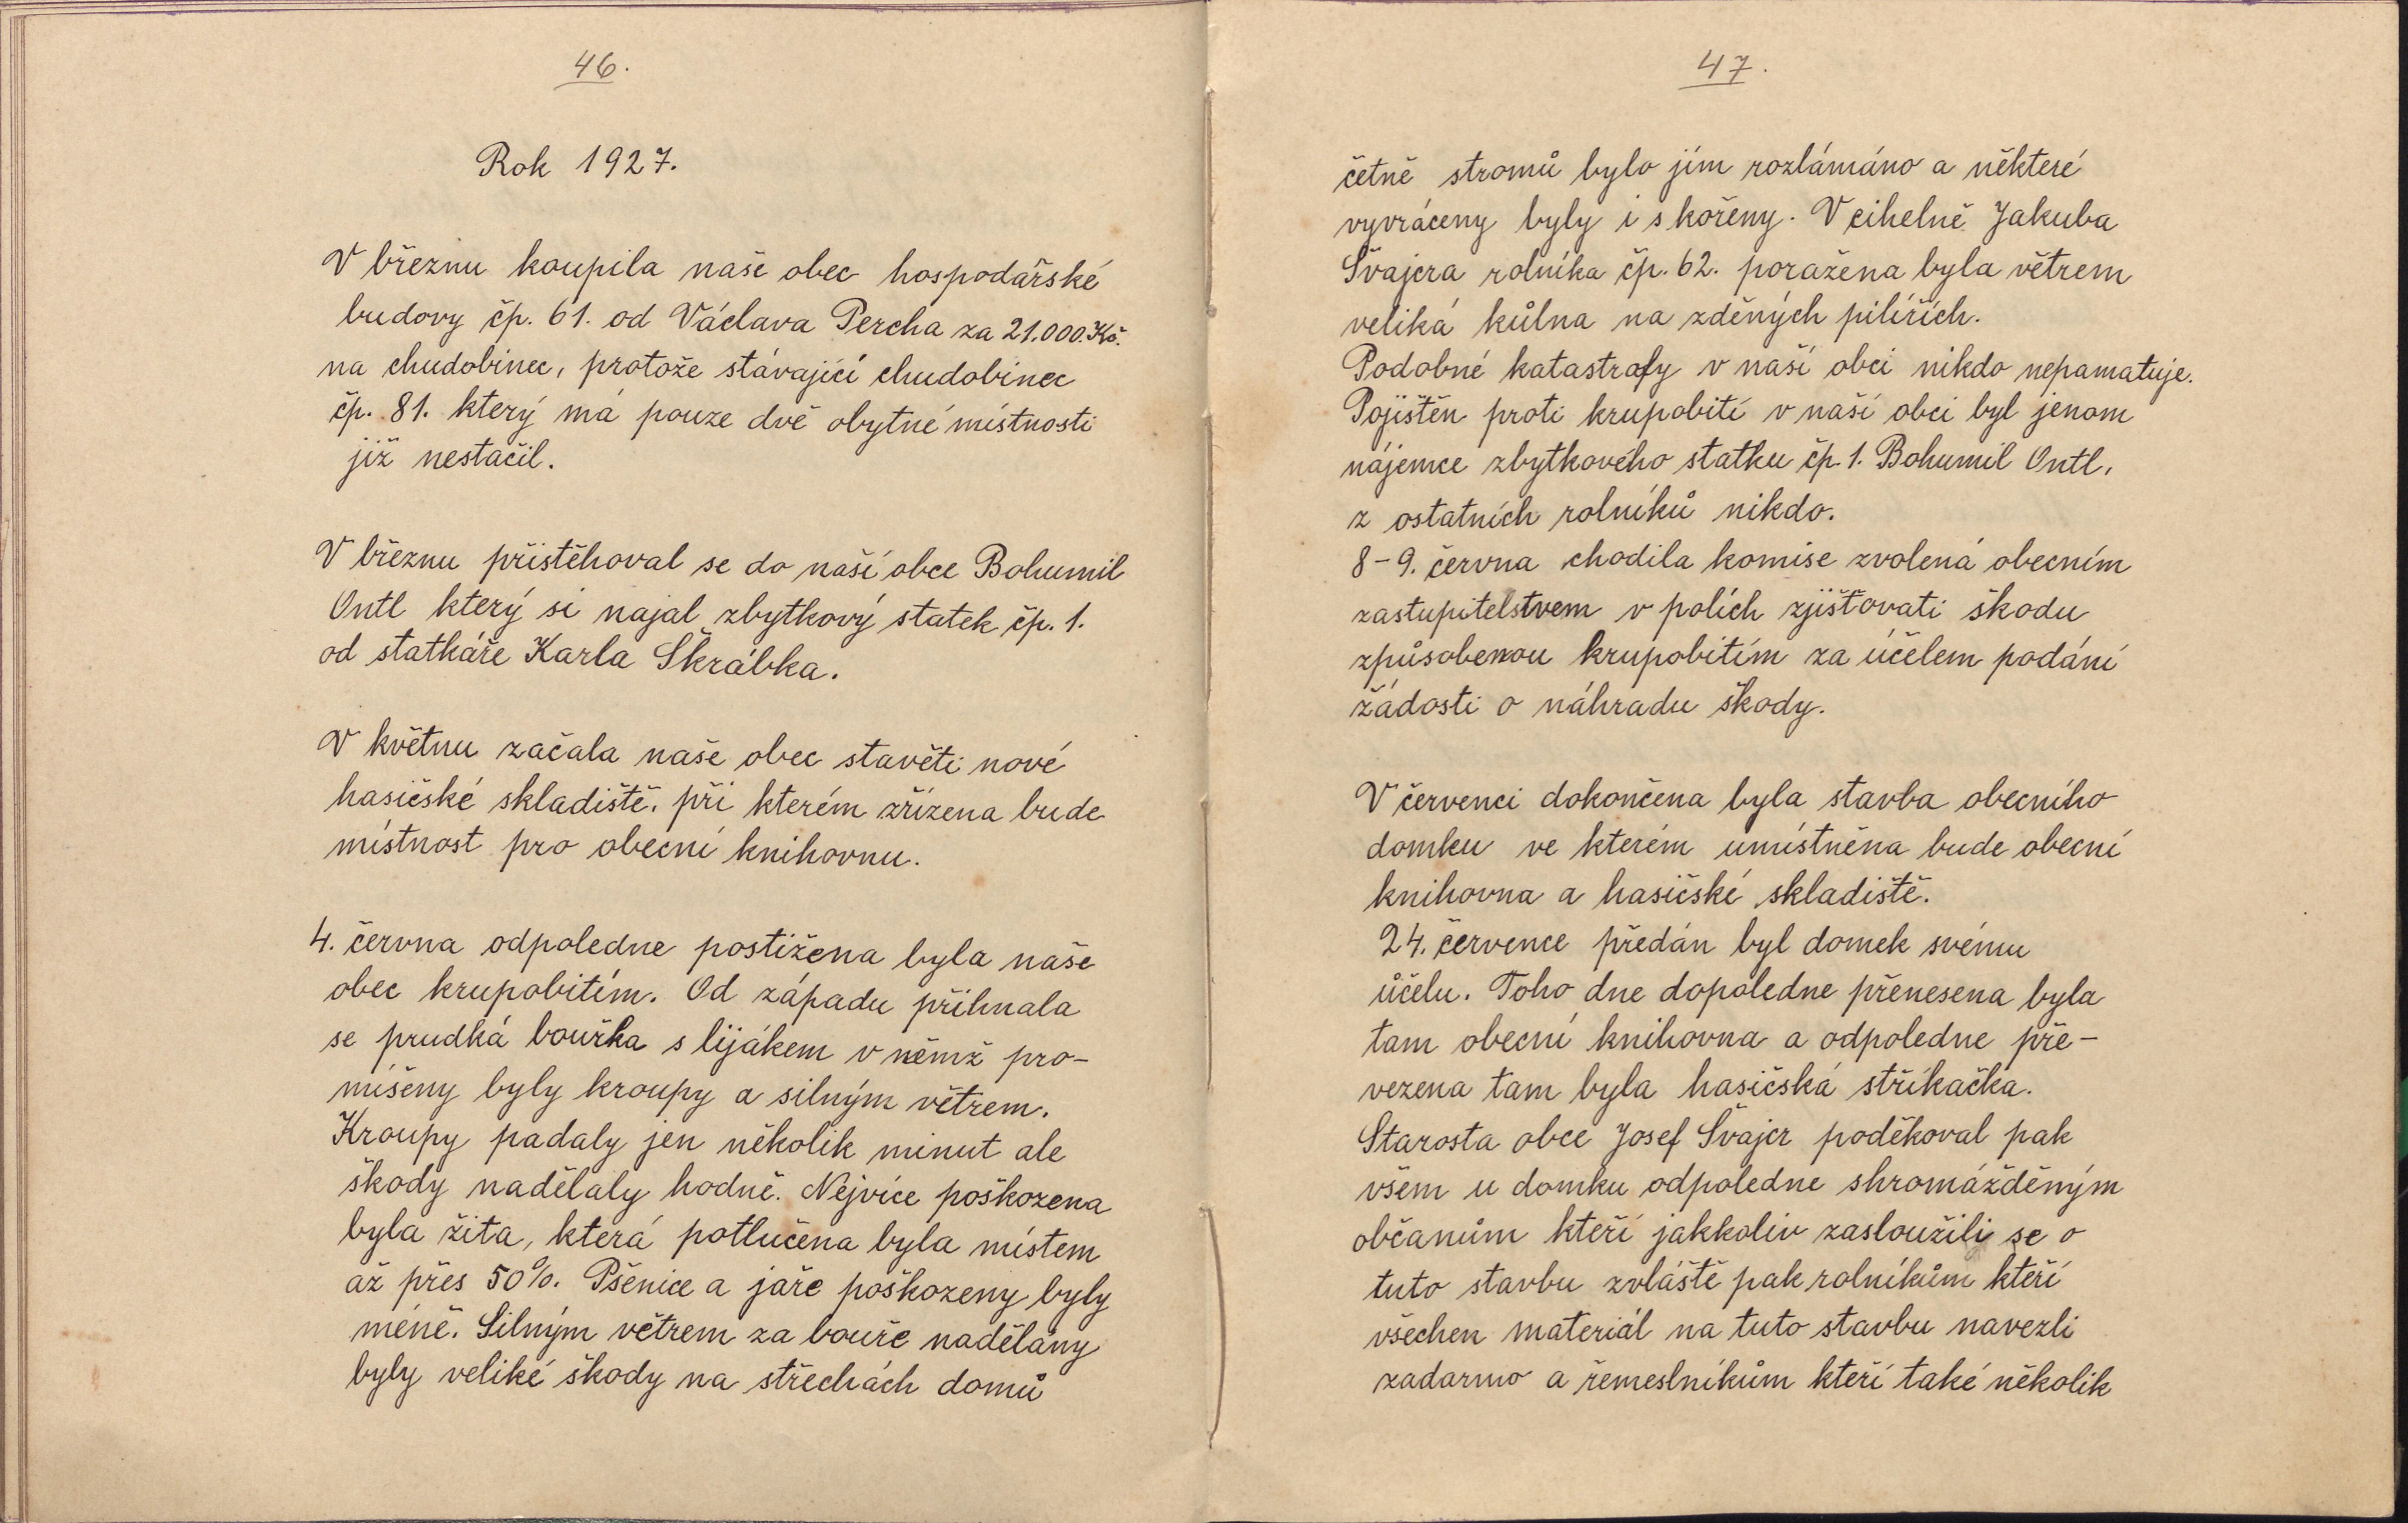 46.
Rok 1927.
V březnu koupila naše obec hospodářské
budovy čp. 61. od Václava Percha za 21.000.Kč.
na chudobinec, protože stávající chudobinec
čp. 81. který má pouze dvě obytné místnosti
již nestačil.
V březnu přistěhoval se do naší obce Bohumil
Ontl který si najal zbytkový statek čp. 1.
od statkáře Karla Škrábka.
V květnu začala naše obec stavěti nové
hasičské skladiště, při kterém zřízena bude
místnost pro obecní knihovnu.
4. června odpoledne postižena byla naše
obec krupobitím. Od západu přihnala
se prudká bouřka s lijákem v němž pro-
míšeny byly kroupy a silným větrem.
Kroupy padaly jen několik minut ale
škody nadělaly hodně. Nejvíce poškozena
byla žita, která potlučena byla místem
až přes 50%. Pšenice a jaře poškozeny byly
méně. Silným větrem za bouře nadělány
byly veliké škody na střechách domů
47.
četně stromů bylo jím rozlámáno a některé
vyvráceny byly i s kořeny. V cihelně Jakuba
Švajcra rolníka čp. 62. poražena byla větrem
veliká kůlna na zděných pilířích.
Podobné katastrofy v naší obci nikdo nepamatuje.
Pojištěn proti krupobití v naší obci byl jenom
nájemce zbytkového statku čp. 1. Bohumil Ontl,
z ostatních rolníků nikdo.
8-9. června chodila komise zvolená obecním
zastupitelstvem v polích zjišťovati škodu
způsobenou krupobitím za účelem podání
žádosti o náhradu škody.
V červenci dokončena byla stavba obecního
domku ve kterém umístněna bude obecní
knihovna a hasičské skladiště.
24. července předán byl domek svému
účelu. Toho dne dopoledne přenesena byla
tam obecní knihovna a odpoledne pře-
vezena tam byla hasičská stříkačka.
Starosta obce Josef Švajcr poděkoval pak
všem u domku odpoledne shromážděným
občanům kteří jakkoliv zasloužili se o
tuto stavbu zvláště pak rolníkům kteří
všechen materiál na tuto stavbu navezli
zadarmo a řemeslníkům kteří také několik